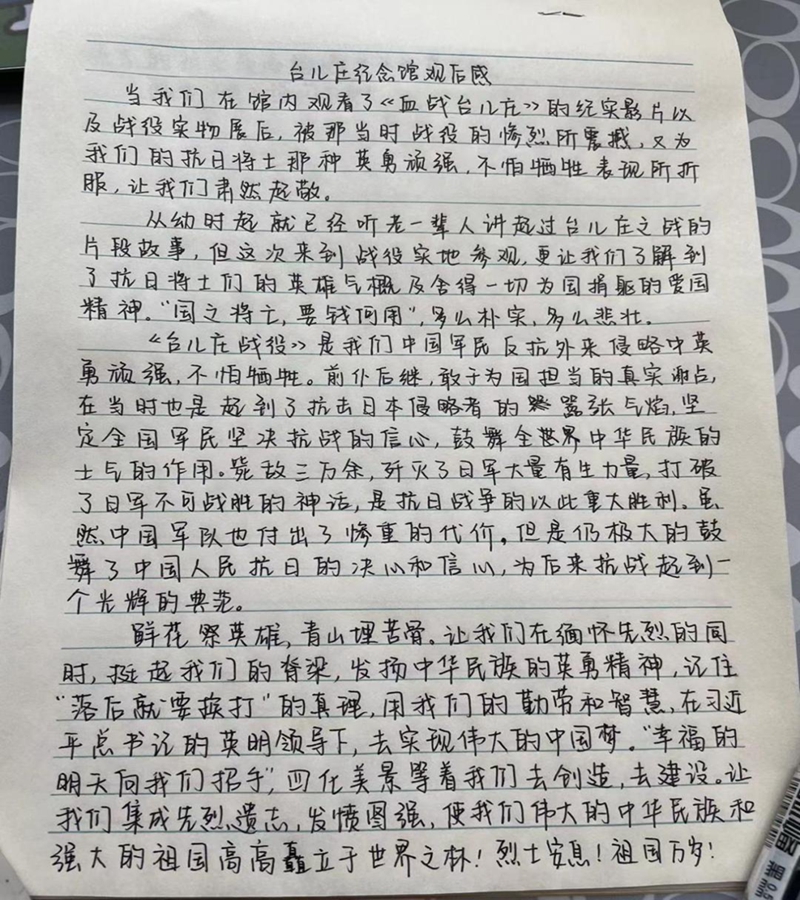 台儿庄纪念馆观后感
当我们在馆内观看了《血战台儿庄》的纪实影片以
及战役实物展后，被那当时战役的惨烈所震撼，又为
我们的抗日将士那种英勇顽强，不怕牺牲表现所折
服，让我们肃然起敬。
从幼时起就已经听老一辈人讲起过台儿庄之战的
片段故事，但这次来到战役实地参观，更让我们了解到
了抗日将士们的英雄气概及舍得一切为国捐躯的爱国
精神。“国之将亡，要钱何用”，多么朴实，多么悲壮。
《台儿庄战役》是我们中国军民反抗外来侵略中英
勇顽强，不怕牺牲。前仆后继，敢于为国担当的真实
在当时也是起到了抗击日本侵略者的嚣张气焰，坚
定全国军民坚决抗战的信心，鼓舞全世界中华民族的
士气的作用。毙敌三万余，歼灭了日军大量有生力量，打破
了日军不可战胜的神话，是抗日战争的以此重大胜利。虽
然，中国军队也付出了惨重的代价。但是仍极大的鼓
舞了中国人民抗日的决心和信心，为后来抗战起到一
个光辉的典范。
鲜花祭英雄，青山埋苦骨。让我们在缅怀先烈的同
时，挺起我们的脊梁，发扬中华民族的英勇精神，记住
“落后就要挨打”的真理，用我们的勤劳和智慧，在习近
平总书记的英明领导下，去实现伟大的中国梦。“幸福的
明天向我们招手”，四化美景等着我们去创造，去建设。让
我们集成先烈遗志，发愤图强，使我们伟大的中华民族和
强大的祖国高高矗立于世界之林！烈士安息！祖国万岁！